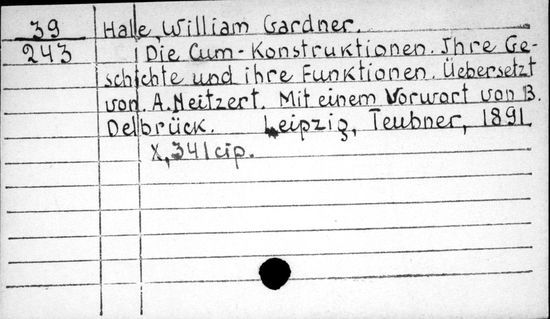 39 Halle, William Gardner.
243 Die Cum-Konstruktionen. Ihre Ge-
schichte und ihre Funktionen. Üebersetzt
von A. Neitzert. Mit einem Vorwort von B.
Delbrück. Leipzig, Teubner, 1891.
X, 341 cip.